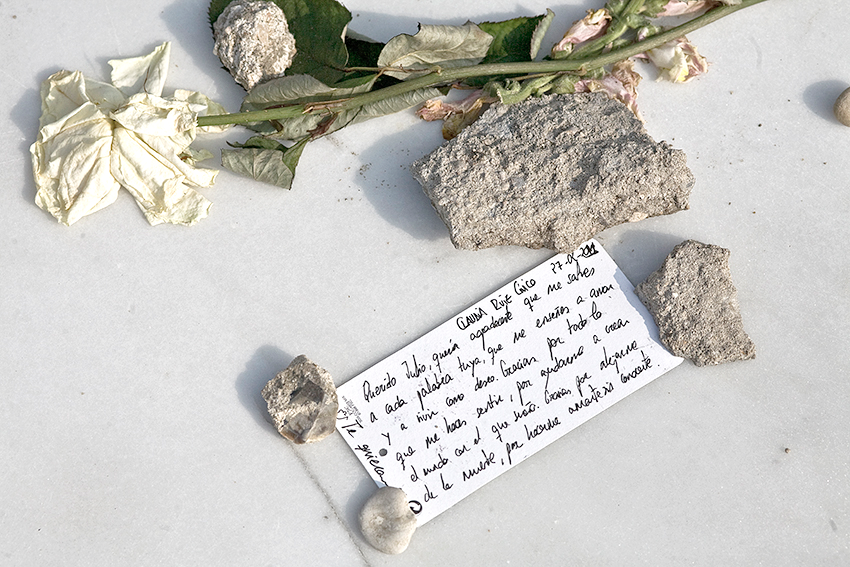 CLAUDIA
Querido Julio, quería agradecerte que me salves
a cada palabra tuya, que me enseñes a amar
y a vivir como deseo. Gracias por todo lo
que me haces sentir, por ayudarme a crear
el mundo en el que sueño. Gracias por alejarme
de la muerte, por hacerme amarte sin conocerte.
Te quiero